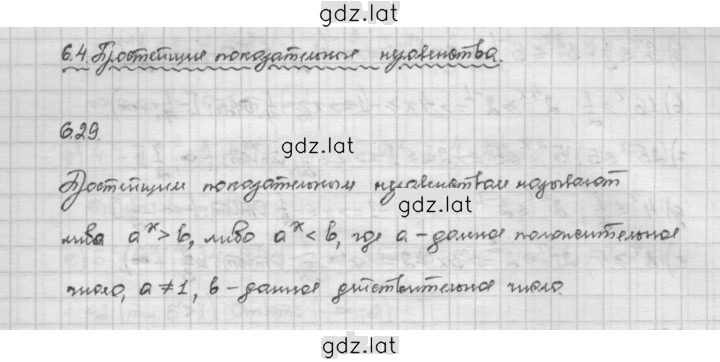 gdz.lat
6.4. Простейшие показательные неравенства.
6.29.
gdz.lat
Простейшим показательным неравенством называют
gdz.lat
либо a^x > b, либо a^x < b, где a - данное положительное
число, a ≠ 1, b - данное действительное число.
gdz.lat